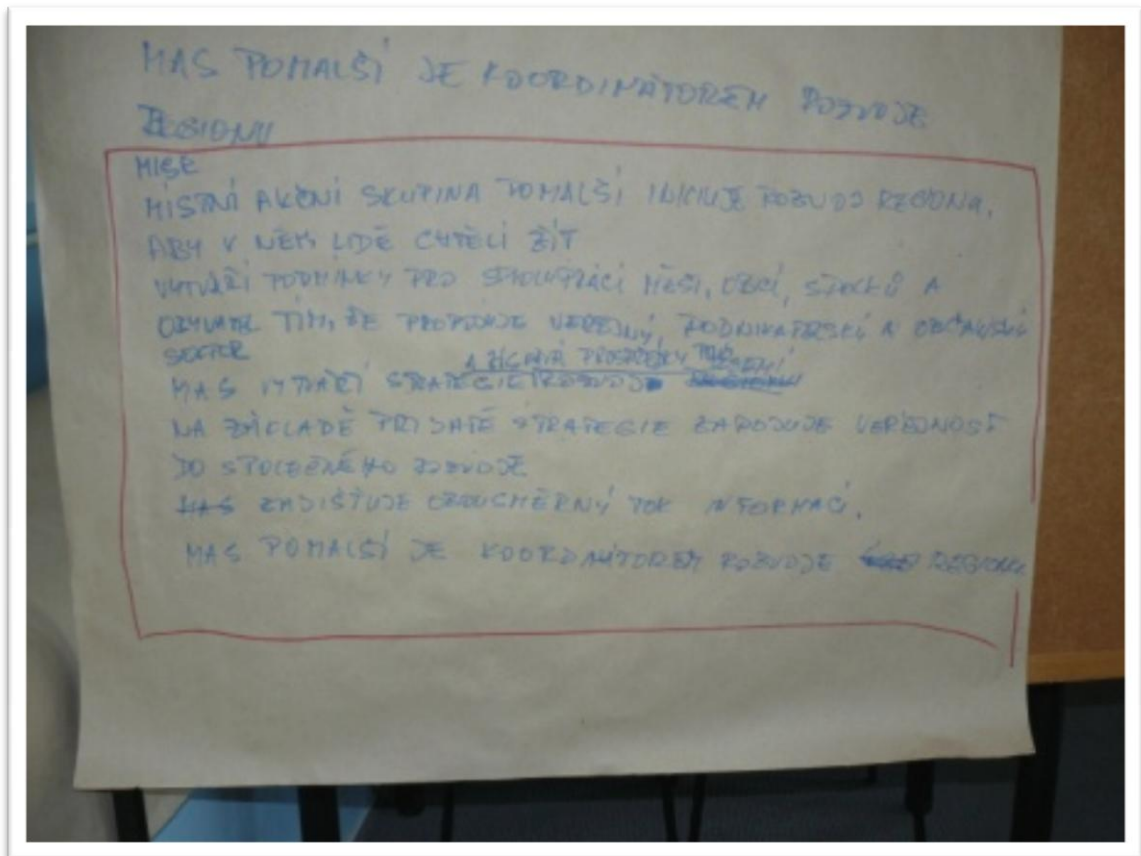 MAS POMALŠÍ JE KOORDINÁTOREM ROZVOJE
REGIONU
MISE
MÍSTNÍ AKČNÍ SKUPINA POMALŠÍ INICIUJE ROZVOJ REGIONU,
ABY V NĚM LIDÉ CHTĚLI ŽÍT
VYTVÁŘÍ PODMÍNKY PRO SPOLUPRÁCI MĚST, OBCÍ, SPOLKŮ A
OBYVATEL TÍM, ŽE PROPOJUJE VEŘEJNÝ, PODNIKATELSKÝ A OBČANSKÝ
SEKTOR
A ZÍSKÁVÁ PROSTŘEDKY PRO
MAS VYTVÁŘÍ STRATEGIE ROZVOJE
NA ZÁKLADĚ PŘIJATÉ STRATEGIE ZAPOJUJE VEŘEJNOST
DO SPOLEČNÉHO ROZVOJE
MAS ZAJIŠŤUJE OBOUSMĚRNÝ TOK INFORMACÍ.
MAS POMALŠÍ JE KOORDINÁTOREM ROZVOJE REGIONU